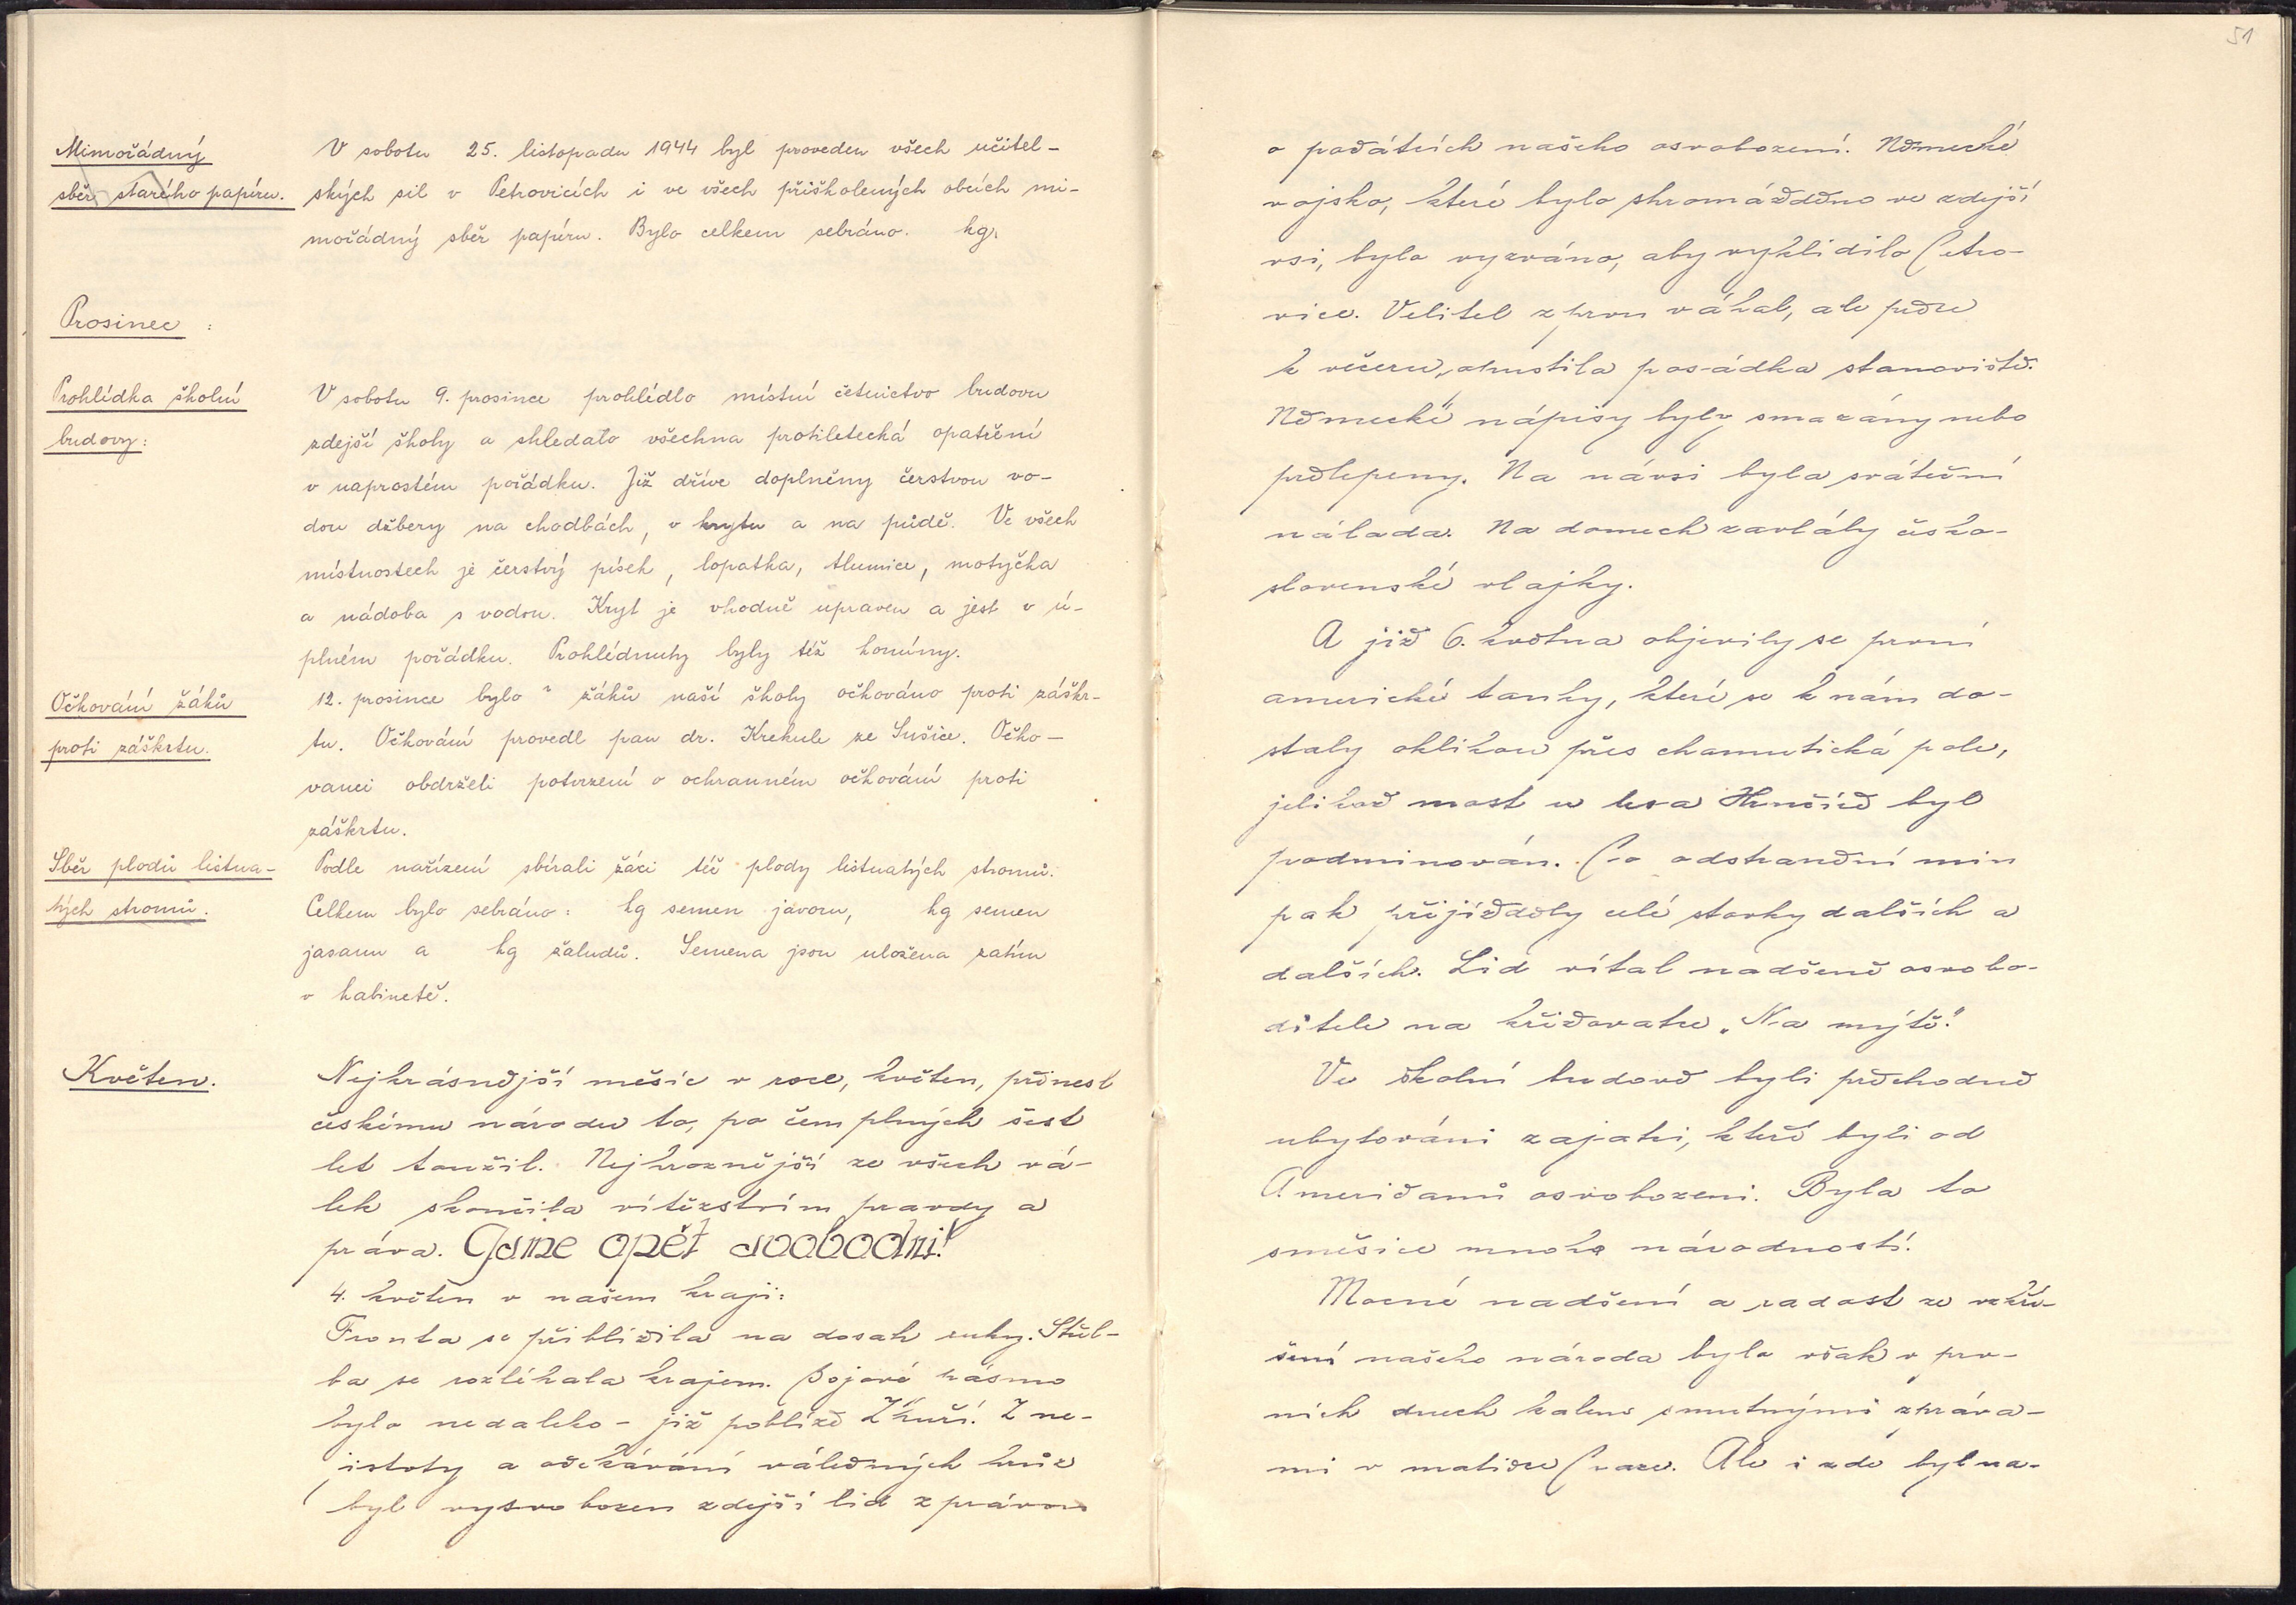 51
Mimořádný
sběr starého papíru.
V sobotu 25. listopadu 1944 byl proveden všech učitel-
ských sil v Petrovicích i ve všech přiškolených obcích mi-
mořádný sběr papíru. Bylo celkem sebráno. kg.
Prosinec :
Prohlídka školní
budovy:
V sobotu 9. prosince prohlédlo místní četnictvo budovu
zdejší školy a shledalo všechna protiletecká opatření
v naprostém pořádku. Již dříve doplněny čerstvou vo-
dou džbery na chodbách, v krytu a na půdě. Ve všech
místnostech je čerstvý písek, lopatka, tlumice, motyčka
a nádoba s vodou. Kryt je vhodně upraven a jest v ú-
plném pořádku. Prohlédnuty byly též komíny.
Očkování žáků
proti záškrtu.
12. prosince bylo žáků naší školy očkováno proti záškr-
tu. Očkování provedl pan dr. Krekule ze Sušice. Očko-
vanci obdrželi potvrzení o ochranném očkování proti
záškrtu.
Sběr plodů listna-
tých stromů.
Podle nařízení sbírali žáci též plody listnatých stromů.
Celkem bylo sebráno: kg semen javoru, kg semen
jasanu a kg žaludů. Semena jsou uložena zatím
v kabinetě.
Květen.
Nejkrásnější měsíc v roce, květen, přinesl
českému národu to, po čem plných šest
let toužil. Nejhroznější ze všech vá-
lek skončila vítězstvím pravdy a
práva. Jsme opět svobodni!
4. květen v našem kraji:
Fronta se přiblížila na dosah ruky. Střel-
ba se rozléhala krajem. Bojové pásmo
bylo nedaleko - již poblíže Zhuří. Z ne-
jistoty a očekávání válečných hrůz
byl vysvobozen zdejší lid zprávou
o počátcích našeho osvobození. Německé
vojsko, které bylo shromážděno ve zdejší
vsi, bylo vyzváno, aby vyklidilo Petro-
vice. Velitel zprvu váhal, ale přece
k večeru opustila posádka stanoviště.
Německé nápisy byly smazány nebo
přelepeny. Na návsi byla sváteční
nálada. Na domech zavlály česko-
slovenské vlajky.
A již 6. května objevily se první
americké tanky, které se k nám do-
staly oklikou přes chamutická pole,
jelikož most u lesa Hrnčíř byl
podminován. Po odstranění min
pak přijížděly celé stovky dalších a
dalších. Lid vítal nadšeně osvobo-
ditele na křižovatce „Na mýtě."
Ve školní budově byli přechodně
ubytováni zajatci, kteří byli od
Američanů osvobozeni. Byla to
směsice mnoha národností.
Mocné nadšení a radost ze vzkří-
šení našeho národa bylo však v prv-
ních dnech kaleno smutnými zpráva-
mi v matičce Praze. Ale i zde byl na-